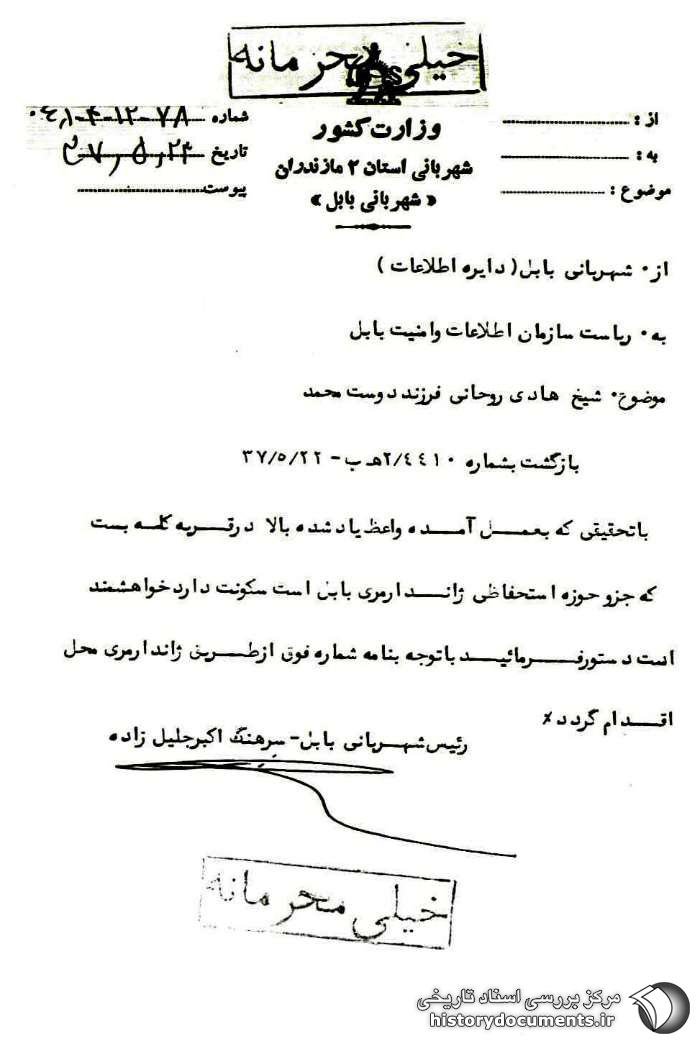 خیلی محرمانه
وزارت کشور
شهربانی استان ۲ مازندران
« شهربانی بابل »
از :
به :
موضوع :
شماره ۷۸-۱۲-۴-۰۴٫۱
تاریخ ۳۷٫۵٫۲۴
پیوست
از۰ شهربانی بابل(دایره اطلاعات )
به۰ ریاست سازمان اطلاعات وامنیت بابل
موضوع۰ شیخ هادی روحانی فرزند دوست محمد
بازگشت بشماره ۲/٤٤۱۰هـ ب - ۳۷/۵/۲۲
باتحقیقی که بعمل آمده واعظ یاد شده بالا درقریه کله بست
که جزو حوزه استحفاظی ژاندارمری بابل است سکونت دارد خواهشمند
است دستورفرمائید باتوجه بنامه شماره فوق ازطریق ژاندارمری محل
اقدام گردد٪
رئیس شهربانی بابل- سرهنگ اکبرجلیل زاده
خیلی محرمانه
مرکز بررسی اسناد تاریخی
historydocuments.ir